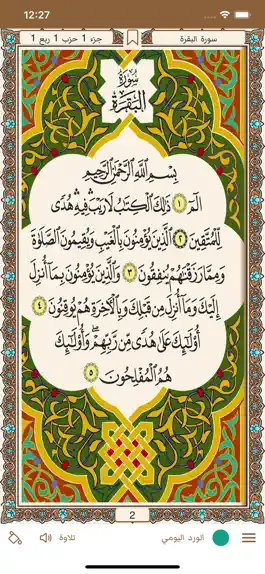 12:27
سورة البقرة
جزء 1 حزب 1 ربع 1
سُورَةُ
البَقَرَةِ
بِسْمِ اللَّهِ الرَّحْمَٰنِ الرَّحِيمِ
الٓمٓ ١ ذَٰلِكَ ٱلْكِتَٰبُ لَا رَيْبَ ۛ فِيهِ ۛ هُدًى
لِّلْمُتَّقِينَ ٢ ٱلَّذِينَ يُؤْمِنُونَ بِٱلْغَيْبِ وَيُقِيمُونَ ٱلصَّلَوٰةَ
وَمِمَّا رَزَقْنَٰهُمْ يُنفِقُونَ ٣ وَٱلَّذِينَ يُؤْمِنُونَ بِمَآ أُنزِلَ
إِلَيْكَ وَمَآ أُنزِلَ مِن قَبْلِكَ وَبِٱلْأَخِرَةِ هُمْ يُوقِنُونَ ٤
أُو۟لَٰٓئِكَ عَلَىٰ هُدًى مِّن رَّبِّهِمْ ۖ وَأُو۟لَٰٓئِكَ
هُمُ ٱلْمُفْلِحُونَ ٥
2
الورد اليومي
تلاوة